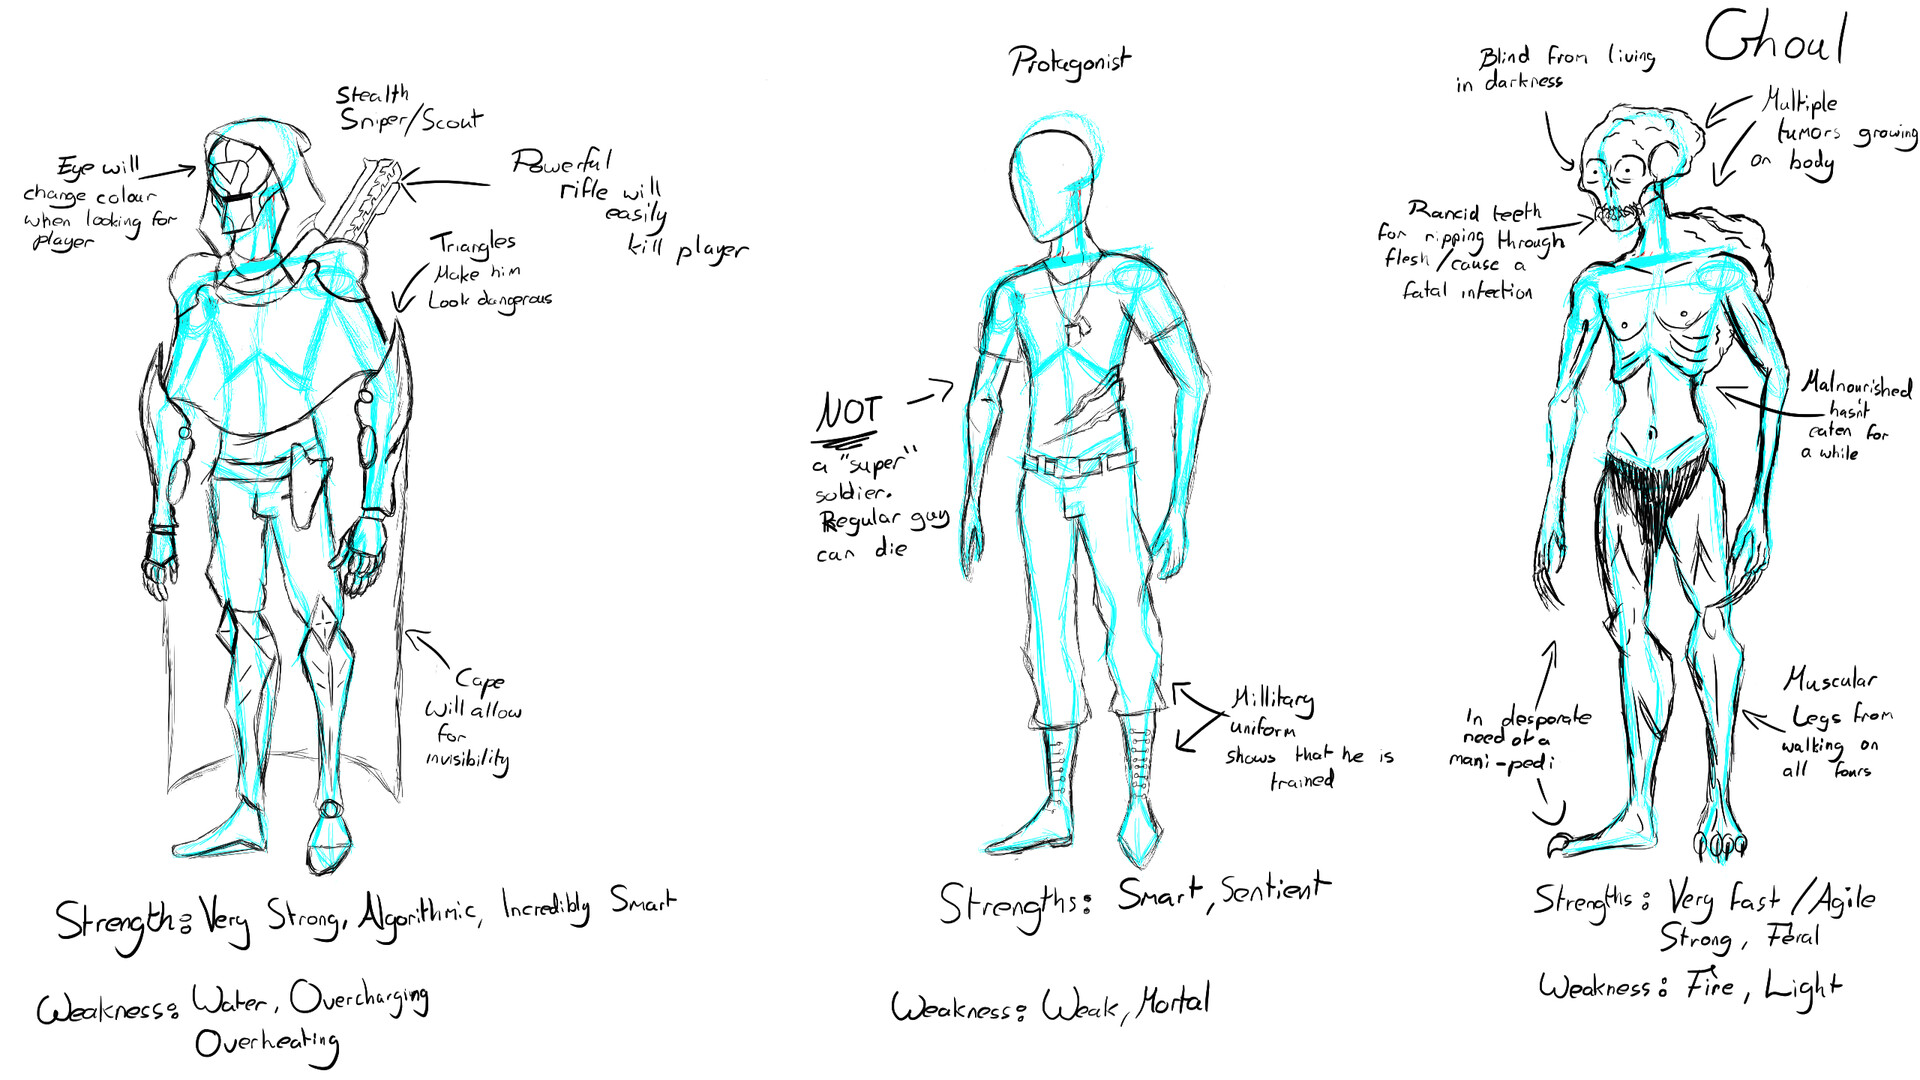 Stealth
Sniper/Scout
Eye will
change colour
when looking for
player
Powerful
rifle will
easily
kill player
Triangles
Make him
Look dangerous
Cape
will allow
for
invisibility
Strength: Very Strong, Algorithmic, Incredibly Smart
Weakness: Water, Overcharging
Overheating
Protagonist
NOT
a "super"
soldier.
Regular guy
can die
Millitary
uniform
shows that he is
trained
Strengths: Smart, Sentient
Weakness: Weak, Mortal
Ghoul
Blind from living
in darkness
Multiple
tumors growing
on body
Rancid teeth
for ripping through
flesh/cause a
fatal infection
Malnourished
hasn't
eaten for
a while
In desporate
need of a
mani-pedi
Muscular
Legs from
walking on
all fours
Strengths: Very Fast/Agile
Strong, Feral
Weakness: Fire, Light